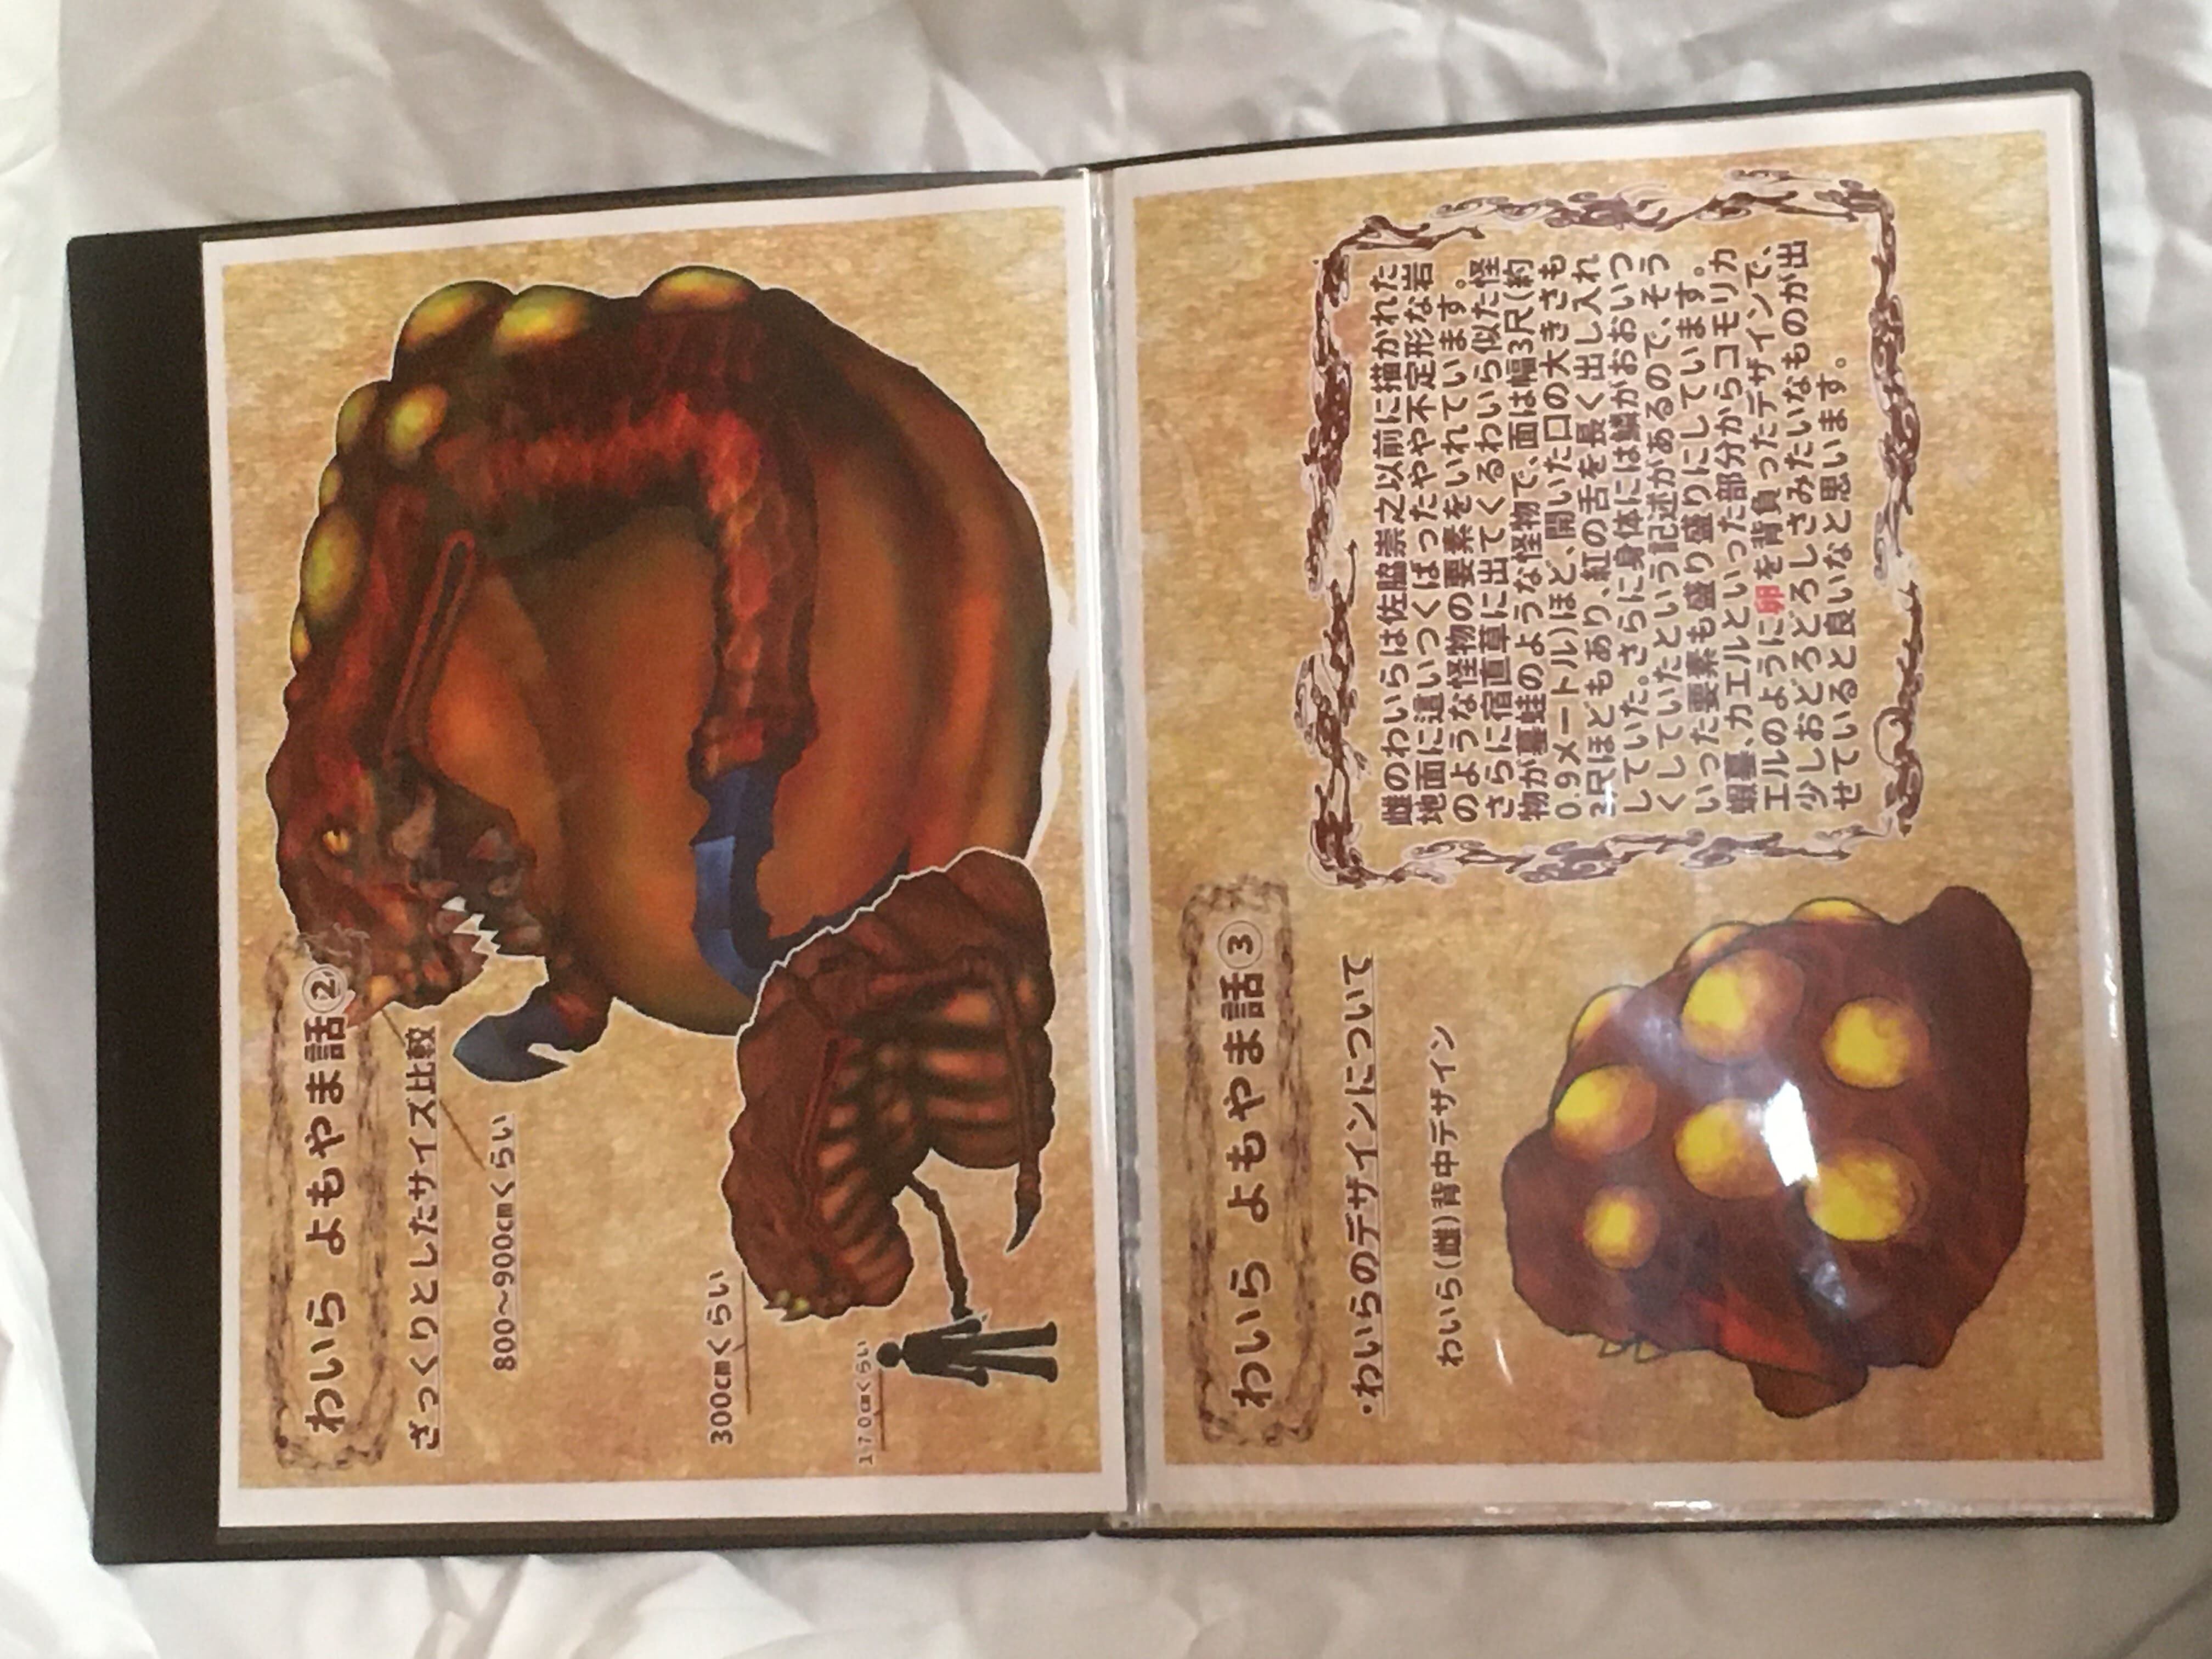 わいら よもやま話②
ざっくりとしたサイズ比較
800～900cmくらい
300cmくらい
170cmくらい
わいら よもやま話③
・わいらのデザインについて
わいら(雌)背中デザイン
雌のわいらは佐脇嵩之以前に描かれた
地面に這いつくばったやや不定形な岩
のような怪物の要素をいれています。
さらに宿直草に出てくるわいら似た怪
物が蟇蛙のような怪物で、面は幅3尺(約
0.9メートル)ほど、開いた口の大きさも
3尺ほどもあり、紅の舌を長く出し入れ
していた。さらに身体には鱗がおおいつ
くしていたという記述があるので、そう
いった要素も盛り盛りにしています。
蝦蟇、カエルといった部分からコモリカ
エルのように卵を背負ったデザインで、
少しおどろどろしさみたいなものが出
せていると良いなと思います。